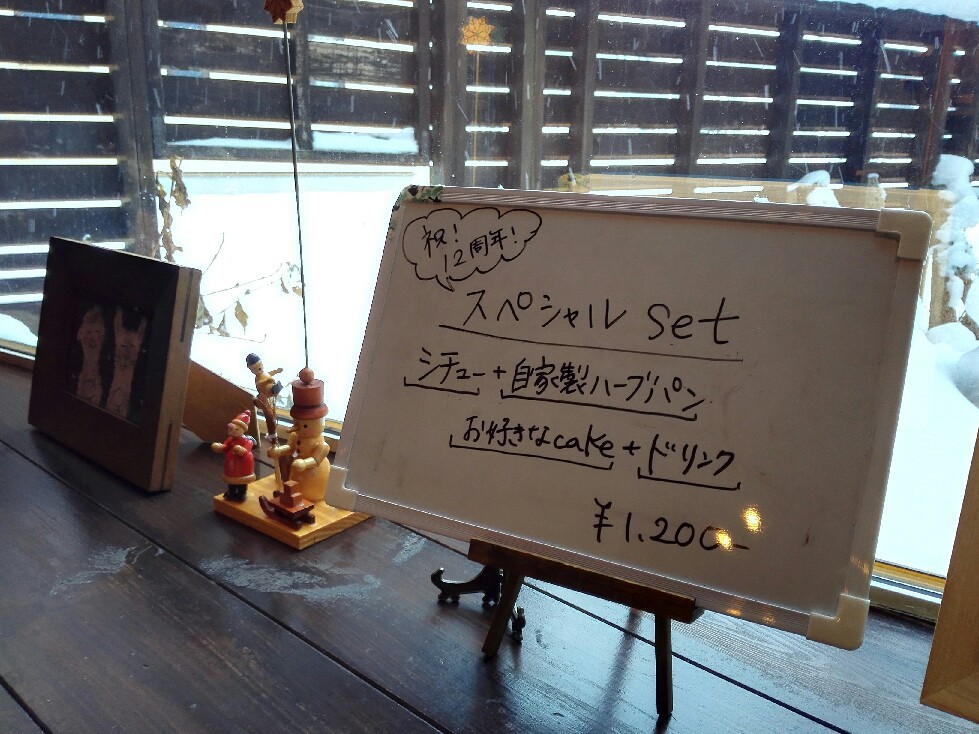 祝!
12周年!
スペシャル set
シチュー + 自家製ハーブパン
お好きなcake + ドリンク
¥1,200-